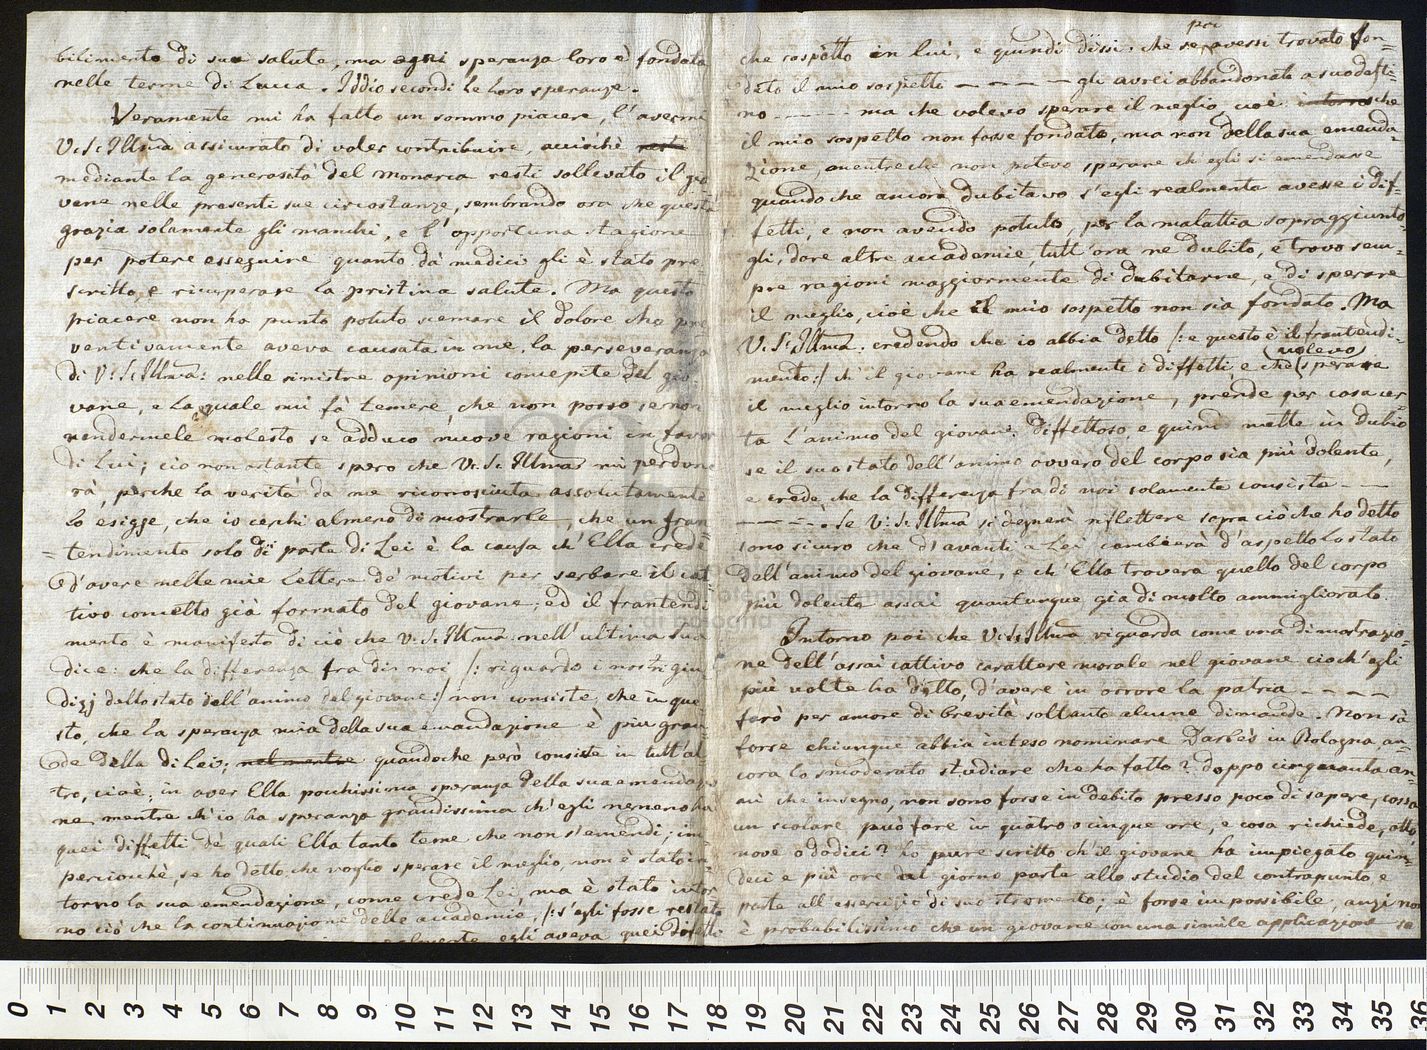 bilimento di sua salute, ma ogni speranza loro è fondata
nelle terme di Lucca. Iddio secondi le loro speranze.
Veramente mi ha fatto un sommo piacere, l'avermi
V: S: Illma assicurato di voler contribuire, acciòchè resti
mediante la generosità del Monarca resti sollevato il gio-
vane nelle presenti sue circostanze, sembrando ora che questa
grazia solamente gli manchi, e l'opportuna stagione
per potere esseguire quanto da' medici gli è stato pre-
scritto, e ricuperare la pristina salute. Ma questo
piacere non ha punto potuto scemare il dolore che pre
ventivamente aveva causata in me, la perseveranza
di V: S: Illma: nelle sinistre opinioni concepite del gio-
vane, e la quale mi fà temere, che non posso se non
rendermele molesto se adduco nuove ragioni in favor
di Lui; ciò non ostante spero che V: S: Illma mi perdone
rà, perche la verità da me riconosciuta assolutamente
lo esigge, che io cerchi almeno di mostrarle, che un fran
=tendimento solo di parte di Lei è la causa ch'Ella crede
d'avere nelle mie lettere de' motivi per serbare il cat
tivo concetto già formato del giovane; ed il frantendi
mento è manifesto di ciò che V: S: Illma: nell'ultima sua
dice: che la differenza fra di noi /: riguardo i nostri giu
dizj dello stato dell'animo del giovane :/ non consiste, che in que
sto, che la speranza mia della sua emendazione è più gran-
de della di Lei; nel mentre quandoche però consiste in tutt'al
tro, cioè; in aver Ella pochissima speranza della sua emendazio
ne, mentre ch'io ha speranza grandissima ch'egli nemeno ha
quei diffetti de' quali Ella tanto teme che non s'emendi; im
perciocchè, se ho detto che voglio sperare il meglio, non è stato in-
torno la sua emendazione, come crede Lei, ma è stato intor
no ciò che la continuazione delle accademie, /: s'egli fosse restato
egli aveva quei difetti
poi
che sospetto in lui, e quindi dissi: che se avessi trovato fon=
dato il mio sospetto – – – – gli avrei abbandonato a suo desti=
no – – – – ma che volevo sperare il meglio, cioè: intorno che
il mio sospetto non fosse fondato, ma non della sua emenda-
zione, mentreche non potevo sperare ch'egli si emendasse
quando che ancora dubitavo s'egli realmente avesse i dif-
fetti, e non avendo potuto, per la malattia sopraggiunto-
gli, dare altre accademie, tutt'ora ne dubito, e trovo sem-
pre ragioni maggiormente di dubitarne, e di sperare
il meglio, cioè che il mio sospetto non sia fondato. Ma
V: S: Illma: credendo che io abbia detto /: e questo è il frantendi-
mento :/ ch'il giovane ha realmente i diffetti, e che (volevo) sperare
il meglio intorno la sua emendazione, prende per cosa cer-
ta l'animo del giovane diffettoso, e quindi mette in dubio
se il suo stato dell'animo ovvero del corpo sia più dolente,
e crede, che la differenza fra di noi solamente consista – –
– – – – . Se V: S: Illma si degnerà riflettere sopra ciò che ho detto
sono sicuro che d'avanti a Lei cambierà d'aspetto lo stato
dell'animo del giovane, e ch'Ella troverà quello del corpo
più dolente assai quantunque già di molto ammigliorato.
Intorno poi che V: S: Illma riguarda come una dimostrazio-
ne dell'assai cattivo carattere morale nel giovane ciò ch'egli
più volte ha detto, d'avere in orrore la patria – – – –
farò per amore di brevità soltanto alcune dimande. Non sà
forse chiunque abbia inteso nominare Darbès in Bologna an-
cora lo smoderato studiare che ha fatto? Doppo cinquanta an-
ni che insegno, non sono forse in debito presso poco di sapere, cosa
un scolare può fare in quatro o cinque ore, e cosa richiede, otto,
nove o dodici? Lo pure scritto ch'il giovane ha impiegato quin-
deci e più ore al giorno parte allo studio del contrapunto, e
parte all'essercizio di suo stromento; è forse impossibile, anzi non
è probabilissimo che un giovane con una simile applicazione sa